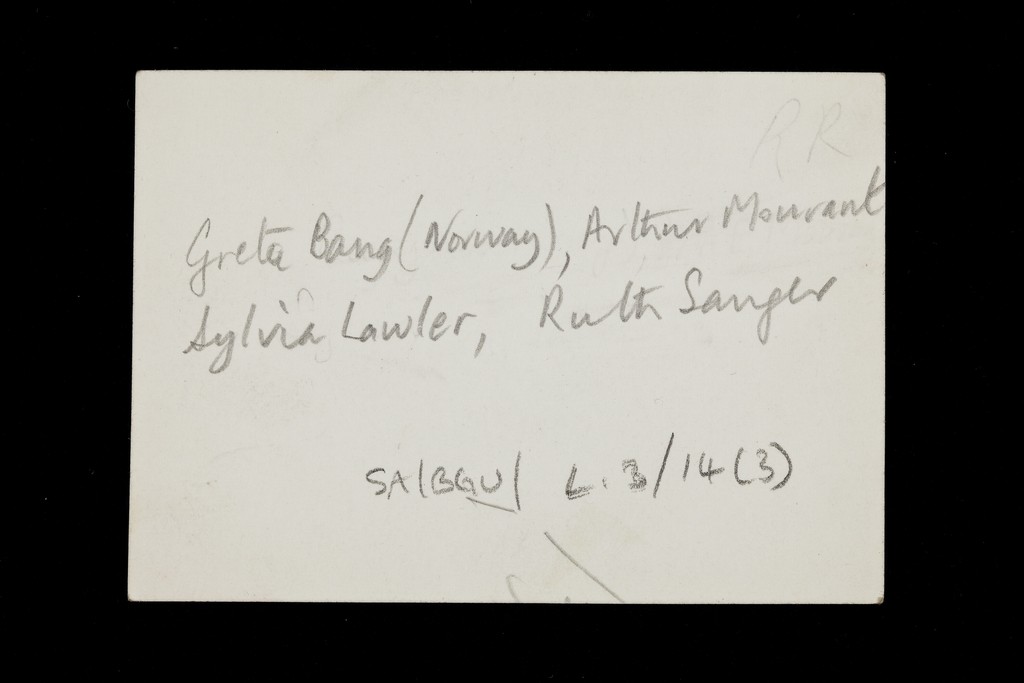 RR
Greta Bang (Norway), Arthur Mourant
Sylvia Lawler, Ruth Sanger
SA/BGU/ L.3/14(3)